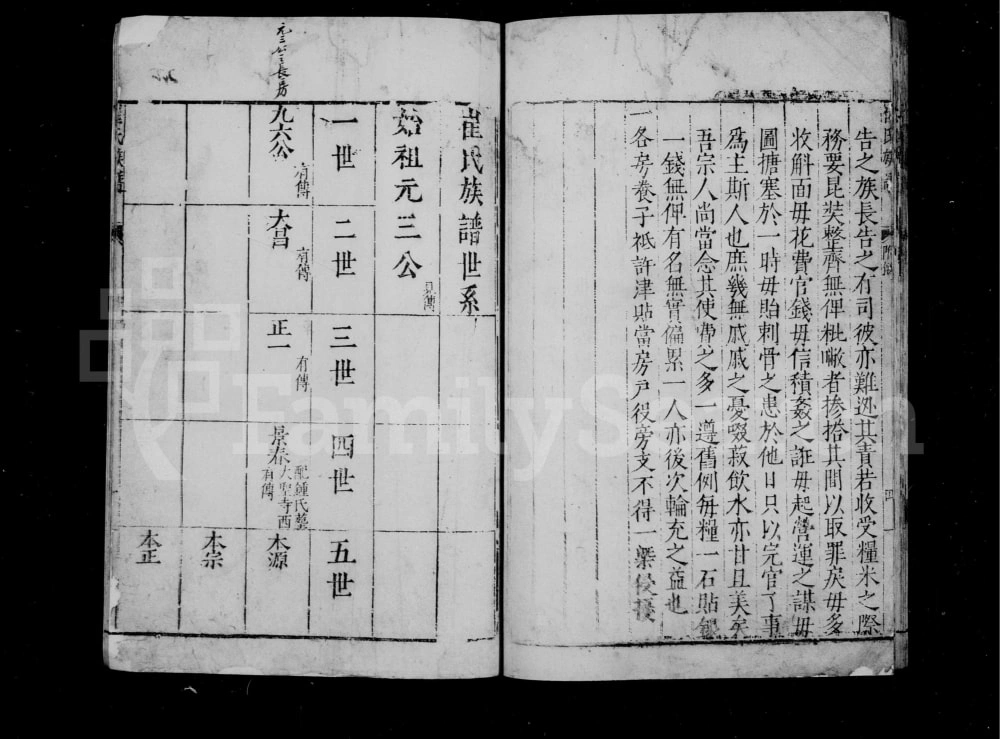 告之族長告之有司彼亦難逃其責若收受糧米之際
務要昆裝整齊無俾秕嚈者摻拾其間以取罪戾毋多
收斛面毋花費官錢毋信積姦之誑毋起營運之謀毋
圖搪塞於一時毋貽刺骨之患於他日只以完官了事
爲主斯人也庶幾無戚戚之憂啜菽飲水亦甘且美矣
吾宗人尚當念其使費之多一遵舊例每糧一石貼銀
一錢無俾有名無實偏累一人亦後次輪充之益也
一各房養子祗許津貼當房戸役旁支不得一槩侵擾
崔氏族譜世系
始祖元三公
見傳
一世 二世 三世 四世 五世
元三公之長房
九六公 有傳
大昌 有傳
正一 有傳
景春 配鍾氏墓大聖寺西 有傳
本源
本宗
本正
FamilySearch